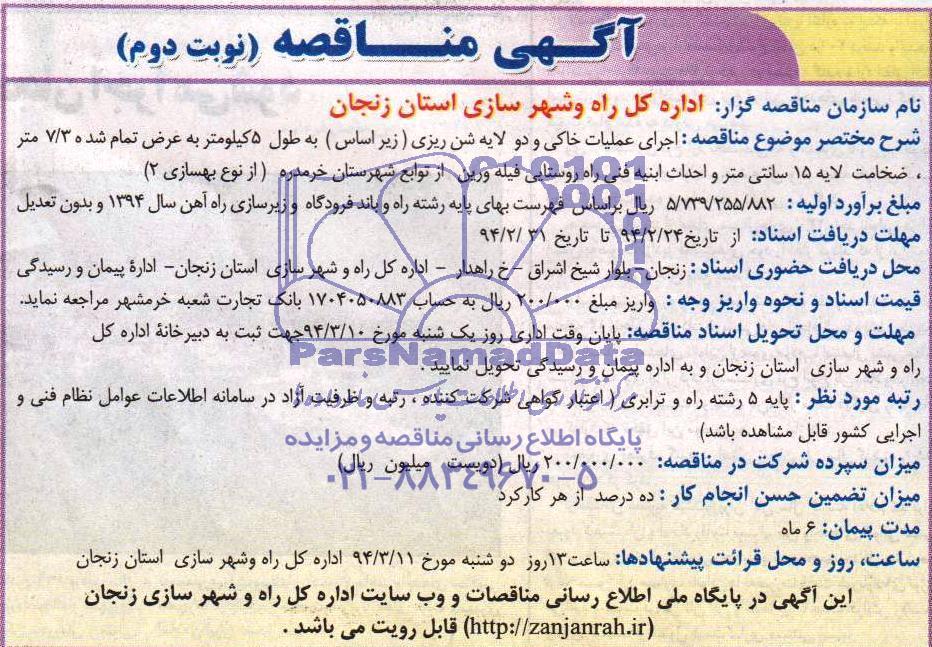 آگهی مناقصه (نوبت دوم)
نام سازمان مناقصه گزار: اداره کل راه وشهر سازی استان زنجان
شرح مختصر موضوع مناقصه: اجرای عملیات خاکی و دو لایه شن ریزی ( زیر اساس ) به طول ۵کیلومتر به عرض تمام شده ۷/۳ متر
، ضخامت لایه ۱۵ سانتی متر و احداث ابنیه فنی راه روستایی قیله ورین از توابع شهرستان خرمدره ( از نوع بهسازی ۲)
مبلغ برآورد اولیه: ۵/۷۳۹/۲۵۵/۸۸۲ ریال براساس فهرست بهای پایه رشته راه و باند فرودگاه و زیرسازی راه آهن سال ۱۳۹۴ و بدون تعدیل
مهلت دریافت اسناد: از تاریخ۹۴/۲/۲۴ تا تاریخ ۹۴/۲/۳۱
محل دریافت حضوری اسناد: زنجان- بلوار شیخ اشراق -خ راهدار - اداره کل راه و شهر سازی استان زنجان- ادارهٔ پیمان و رسیدگی
قیمت اسناد و نحوه واریز وجه: واریز مبلغ ۲۰۰/۰۰۰ ریال به حساب ۱۷۰۴۰۵۰۸۸۳ بانک تجارت شعبه خرمشهر مراجعه نماید.
مهلت و محل تحویل اسناد مناقصه: پایان وقت اداری روز یک شنبه مورخ ۹۴/۳/۱۰جهت ثبت به دبیرخانهٔ اداره کل
راه و شهر سازی استان زنجان و به اداره پیمان و رسیدگی تحویل نمایید.
رتبه مورد نظر: پایه ۵ رشته راه و ترابری ( اعتبار گواهی شرکت کننده ، رتبه و ظرفیت آزاد در سامانه اطلاعات عوامل نظام فنی و
اجرایی کشور قابل مشاهده باشد)
میزان سپرده شرکت در مناقصه: ۲۰۰/۰۰۰/۰۰۰ ریال (دویست میلیون ریال)
میزان تضمین حسن انجام کار: ده درصد از هر کارکرد
مدت پیمان: ۶ ماه
ساعت، روز و محل قرائت پیشنهادها: ساعت۱۳روز دو شنبه مورخ ۹۴/۳/۱۱ اداره کل راه وشهر سازی استان زنجان
این آگهی در پایگاه ملی اطلاع رسانی مناقصات و وب سایت اداره کل راه و شهر سازی زنجان
(http://zanjanrah.ir) قابل رویت می باشد .
ParsNamadData
پایگاه اطلاع رسانی مناقصه و مزایده
۰۲۱-۸۸۳۴۹۶۷۰-۵